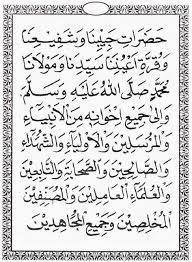 حَضَرَاتِ حَبِيْبِنَا وَشَفِيْعِنَا
وَقُرَّةِ اَعْيُنِنَا سَيِّدِنَا وَمَوْلَانَا
مُحَمَّدٍ صَلَّى اللهُ عَلَيْهِ وَسَلَّمَ
وَاِلَى جَمِيْعِ اِخْوَانِهِ مِنَ الْاَنْبِيَاءِ
وَالْمُرْسَلِيْنَ وَالْاَوْلِيَاءِ وَالشُّهَدَاءِ
وَالصَّالِحِيْنَ وَالصَّحَابَةِ وَالتَّابِعِيْنَ
وَالْعُلَمَاءِ الْعَامِلِيْنَ وَالْمُصَنِّفِيْنَ
الْمُخْلِصِيْنَ وَجَمِيْعِ الْمُجَاهِدِيْنَ